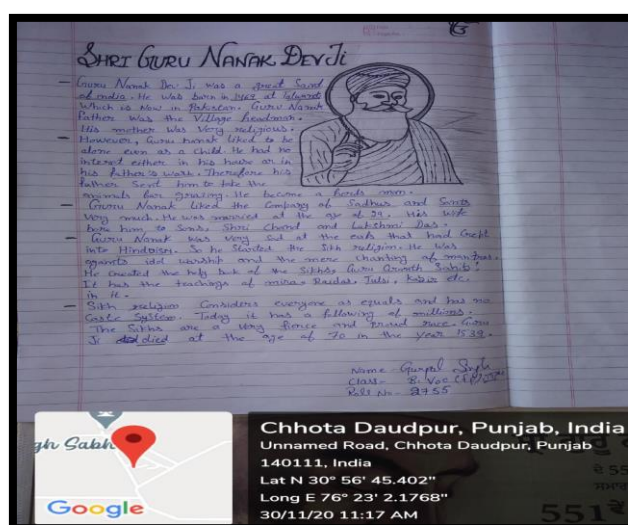 ੴ
SHRI GURU NANAK DEV JI
– Guru Nanak Dev Ji was a great Saint
of india. He was born in 1469 at
Which is Now in Pakistan. Guru Nanak
Father was the Village headman.
His mother Was Very religious.
– However, Guru nanak liked to be
alone even as a child. He had no
interest either in his house or in
his father's work. Therefore his
father Sent him to take the
animals for grazing. He became a herds man.
– Guru Nanak liked the Company of Sadhus and Saints
Very much. He was married at the age of 19. His wife
bore him to Sons, Shri Chand and Lakshmi Das.
– Guru Nanak was very sad at the evils that had Crept
into Hinduism. So he Started the Sikh religion. He was
idol worship and the mere chanting of mantras.
He created the holy book of the Sikhs, Guru Granth Sahib!
It has the teachings of Raidas, Tulsi, Kabir etc.
in it.
– Sikh religion Considers everyone as equals and has no
Caste System. Today it has a following of millions.
The Sikhs are a Very fierce and proud race. Guru
Ji died at the age of 70 in the year 1539.
Name - Gurpal Singh
Class - B. Voc
Roll No - 2755
gh Sabh
Google
Chhota Daudpur, Punjab, India
Unnamed Road, Chhota Daudpur, Punjab
140111, India
Lat N 30° 56' 45.402"
Long E 76° 23' 2.1768"
30/11/20 11:17 AM
551